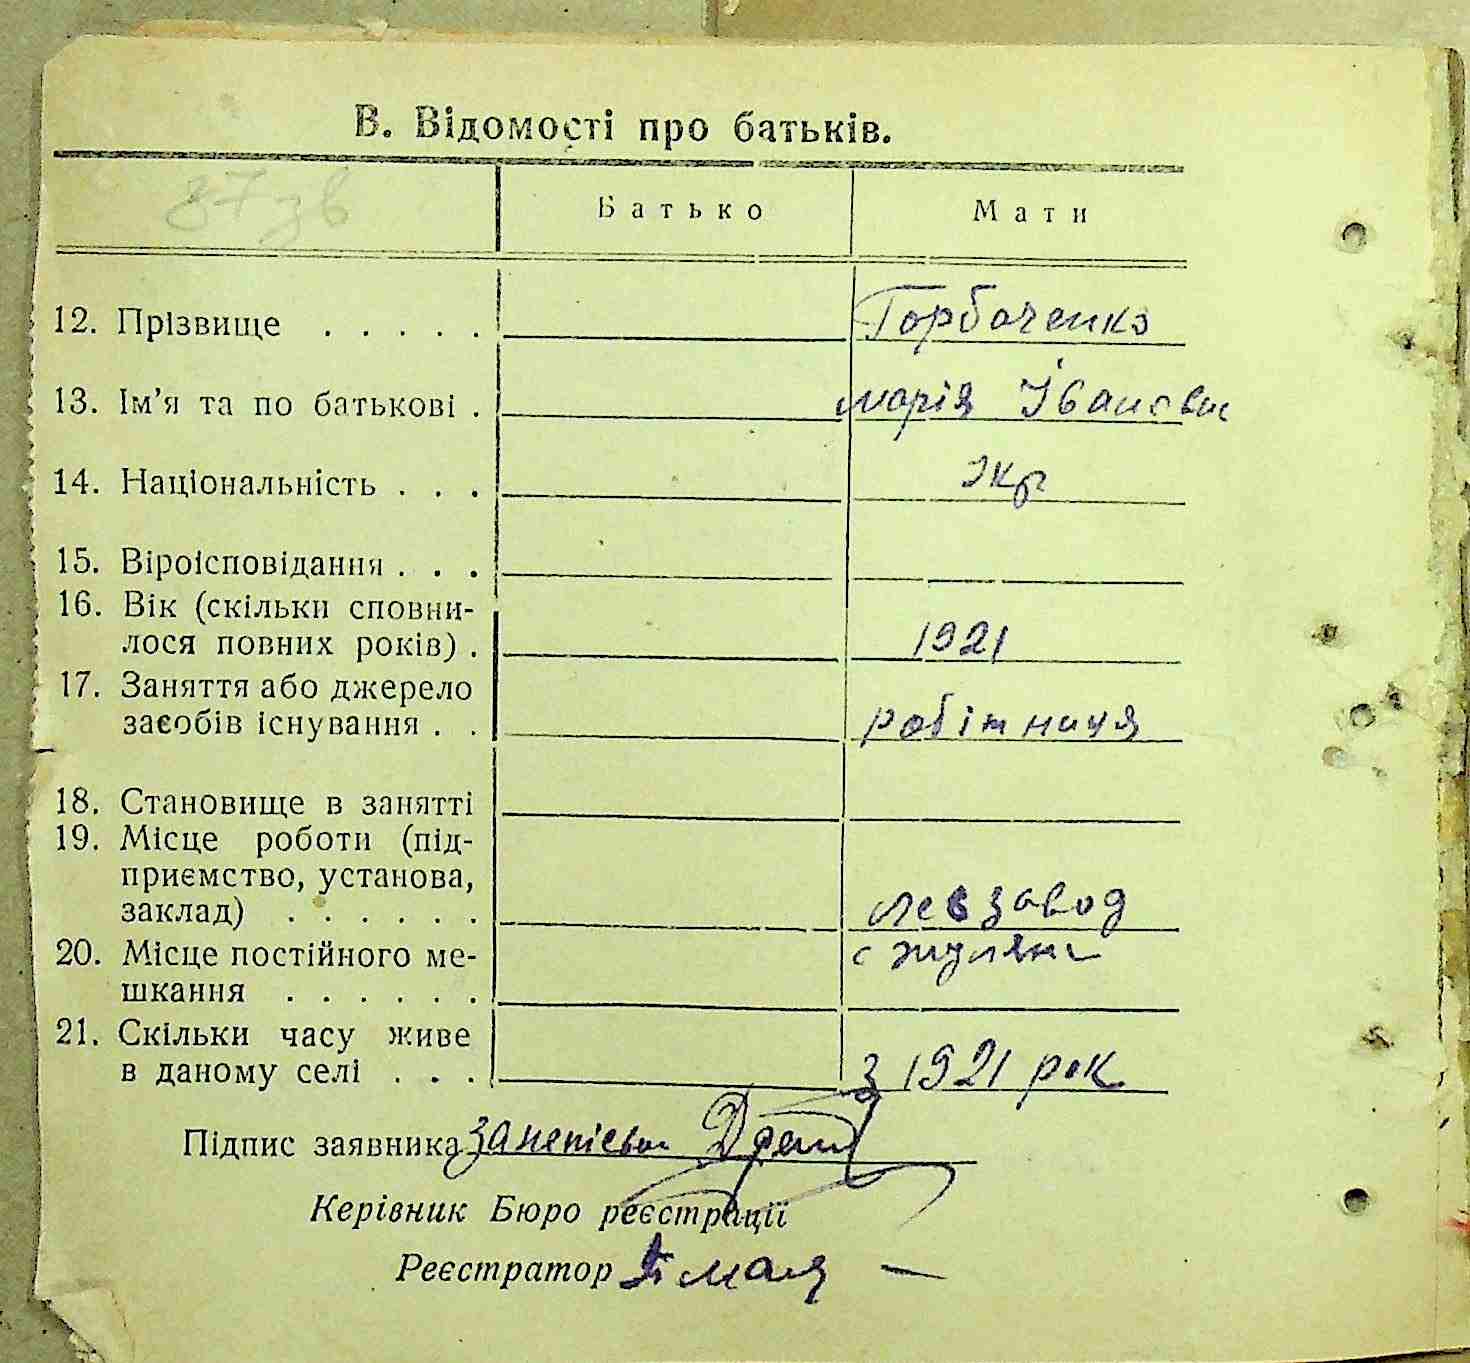 В. Відомості про батьків.
Батько Мати
12. Прізвище . . . . . Горбаченко
13. Ім'я та по батькові . Марія Івановн
14. Національність . . . Укр
15. Віроісповідання . . .
16. Вік (скільки сповни-
лося повних років) . 1921
17. Заняття або джерело
засобів існування . . робітниця
18. Становище в занятті
19. Місце роботи (під-
приємство, установа,
заклад) . . . . . . завод
20. Місце постійного ме- с Жуляни
шкання . . . . . .
21. Скільки часу живе
в даному селі . . . З 1921 рок
Підпис заявника
Керівник Бюро реєстрації
Реєстратор